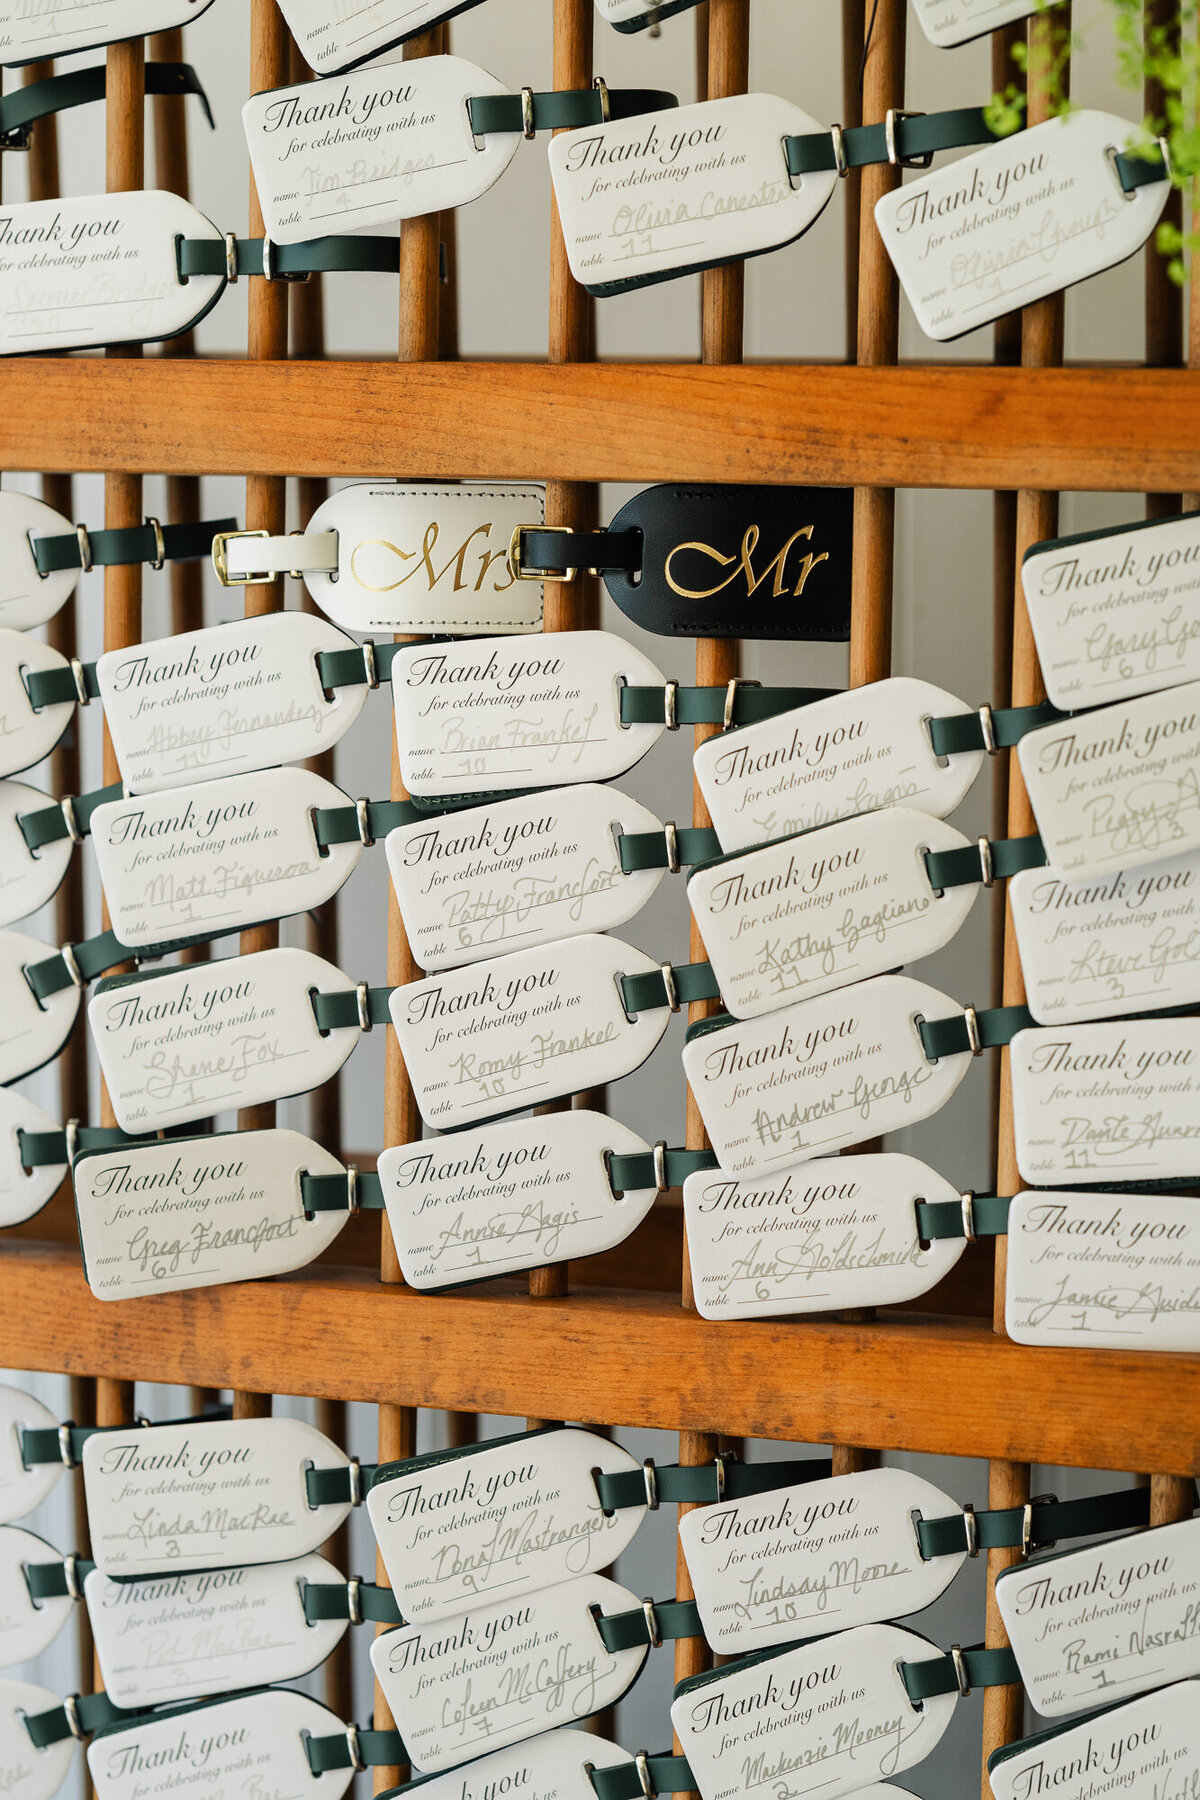 name
table 1
name
table
Thank you
for celebrating with us
name Jim Bridges
table 4
Thank you
for celebrating with us
name Olivia Canestra
table 11
Thank you
for celebrating with us
name Olivia Chough
table 1
Thank you
for celebrating with us
Spencer Bridges
Mrs
Mr
Thank you
for celebrating with us
name Gary
table 6
Thank you
for celebrating with us
name Abbey Fernandez
table 11
Thank you
for celebrating with us
name Brian Frankel
table 10
Thank you
for celebrating with us
Emily Gagis
Thank you
for celebrating with us
name Peggy
table 3
Thank you
for celebrating with us
name Matt Figueroa
table 1
Thank you
for celebrating with us
name Patty Francfort
table 6
Thank you
for celebrating with us
name Kathy Gagliano
table 11
Thank you
for celebrating with us
name Steve Gol
table 3
Thank you
for celebrating with us
name Shane Fox
table 1
Thank you
for celebrating with us
name Romy Frankel
table 10
Thank you
for celebrating with us
name Andrew George
table 1
Thank you
for celebrating with us
name Dante Guarr
table 11
Thank you
for celebrating with us
name Greg Francfort
table 6
Thank you
for celebrating with us
name Annie Gagis
table 1
Thank you
for celebrating with us
name Ann Goldschmidt
table 6
Thank you
for celebrating with us
name Jamie Guid
table 1
Thank you
for celebrating with us
name Linda MacRae
table 3
Thank you
for celebrating with us
name Donal Mastrangelo
table 9
Thank you
for celebrating with us
name Lindsay Moore
table 10
Thank you
for celebrating with us
name Rami Nasralla
table 1
Thank you
for celebrating with us
name Pat MacRae
table 3
Thank you
for celebrating with us
name Coleen McCaffery
table 7
Thank you
for celebrating with us
name Mackenzie Mooney
table 2
Thank you
for celebrating with us
Thank you
for celebrating with us
Rae
Thank you
for celebrating with us